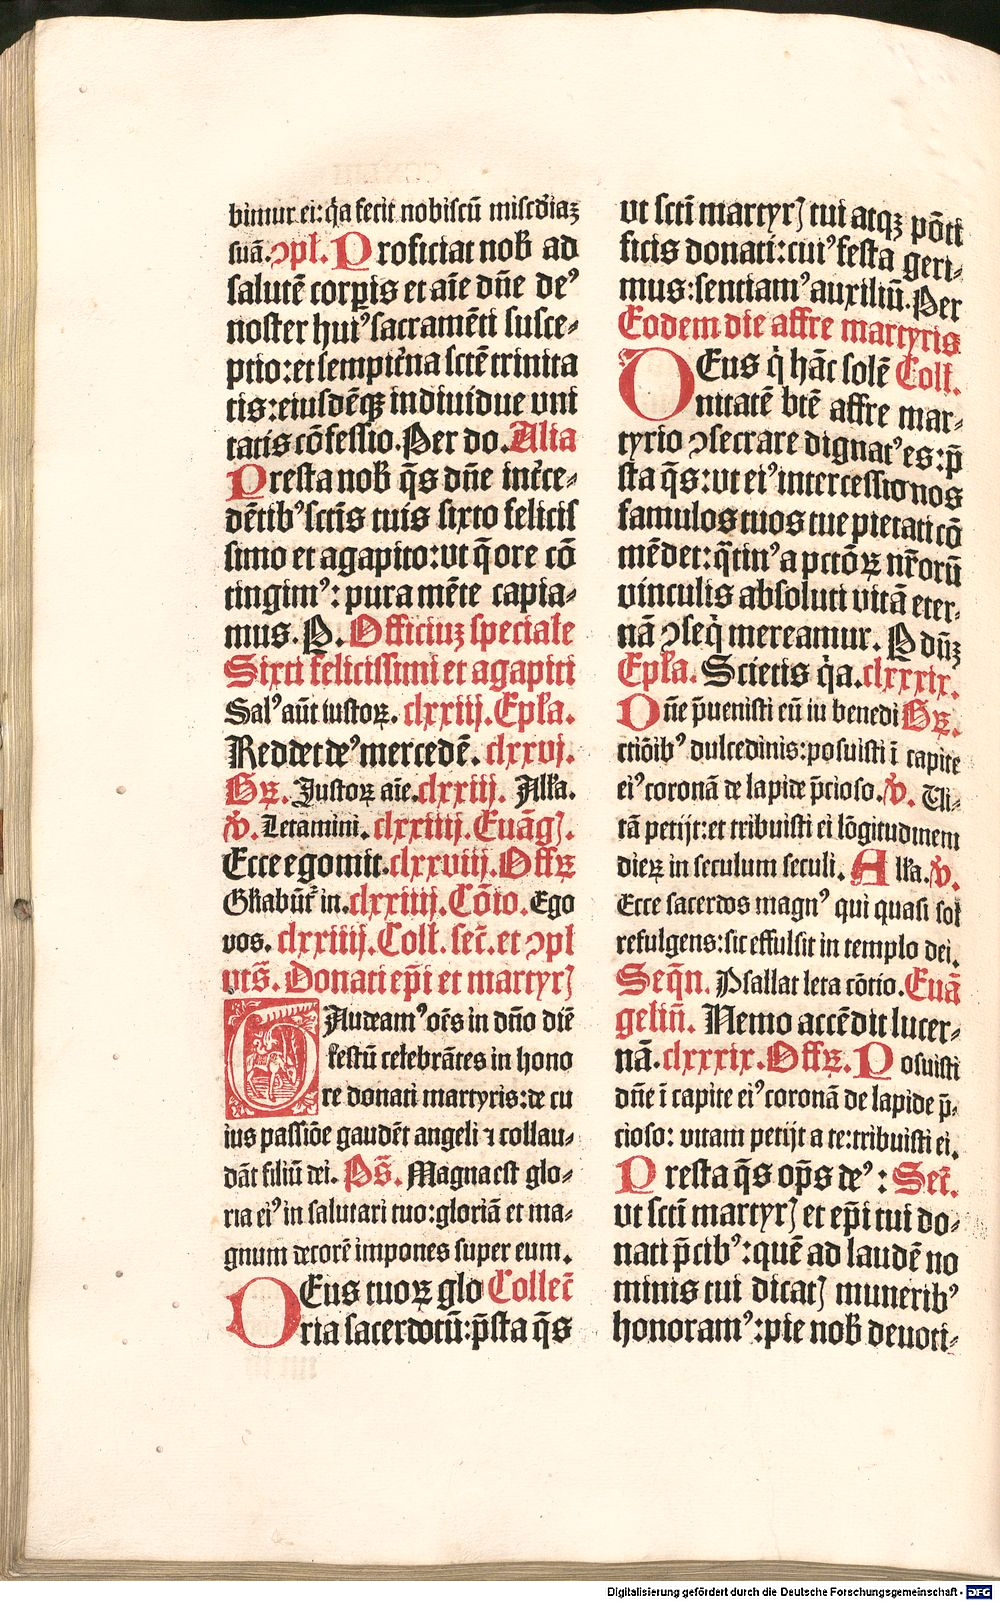 bimur ei: q̇a fecit nobiscū misc̄diaꝫ
suā. ꝯpl̄. Proficiat nob̄ ad
salutē corpis et aīe dn̄e deꝰ
noster huiꝰ sacramēti susce⸗
ptio: et sempit̄na sctē trinita
tis: eiusdēqꝫ indiuidue vni
tatis cōfessio. Per do. Alia
Presta nob̄ q̄s dn̄e int̄ce⸗
dētibꝰ sctīs tuis sixto felicis
simo et agapito: vt q̄ ore cō
tingimꝰ: pura mēte capia⸗
mus. P. Officiuꝫ speciale
Sixti felicissimi et agapiti
Salꝰ aūt iustoꝝ. clxxiij. Epl̄a.
Reddet deꝰ mercedē. clxxvj.
Gꝝ. Justoꝝ aīe. clxxiij. All̄a.
v̄. Letamini. clxxiiij. Euāgꝭ.
Ecce ego mit. clxxviij. Offꝝ
Gl̄iabūt̄ in. clxxiiij. Cōio. Ego
vos. clxxiiij. Coll̄. sec̄. et ꝯpl
vts̄. Donati ep̄i et martyrꝭ
GAudeamꝰ oēs in dn̄o diē
festū celebrātes in hono
re donati martyris: de cu
ius passiōe gaudēt angeli ⁊ collau⸗
dāt filiū dei. Ps̄. Magna est glo⸗
ria eiꝰ in salutari tuo: gloriā et ma⸗
gnum decorē impones super eum.
DEus tuoꝝ glo Collec̄
ria sacerdotū: p̄sta q̄s
vt sctī martyrꝭ tui atqꝫ pōti
ficis donati: cuiꝰ festa geri⸗
mus: sentiamꝰ auxiliū. Per
Eodem die affre martyris
DEus q̇ hāc solē Coll̄.
nitatē btē affre mar⸗
tyrio ꝯsecrare dignatꝰ es: p̄
sta q̄s: vt eiꝰ intercessio nos
famulos tuos tue pietati cō
mēdet: q̄tinꝰ a pctōꝝ nr̄orū
vinculis absoluti vitā eter⸗
nā ꝯseq̇ mereamur. P dn̄ꝫ
Epl̄a. Scietis q̇a. clxxxix.
Dn̄e p̄uenisti eū in benedi Gꝝ.
ctiōibꝰ dulcedinis: posuisti ī capite
eiꝰ coronā de lapide p̄cioso. v̄. Vi⸗
tā petijt: et tribuisti ei lōgitudinem
dieꝝ in seculum seculi. All̄a. v̄.
Ecce sacerdos magnꝰ qui quasi sol
refulgens: sic effulsit in templo dei.
Seq̄n. Psallat leta cōtio. Euā
geliū. Nemo accēdit lucer⸗
nā. clxxxix. Offꝝ. Posuisti
dn̄e ī capite eiꝰ coronā de lapide p̄⸗
cioso: vitam petijt a te: tribuisti ei.
Presta q̄s op̄s deꝰ: Sec̄.
vt sctī martyrꝭ et ep̄i tui do⸗
nati p̄cibꝰ: quē ad laudē no
minis tui dicatꝭ muneribꝰ
honoramꝰ: pie nob̄ deuoti⸗
Digitalisierung gefördert durch die Deutsche Forschungsgemeinschaft - DFG